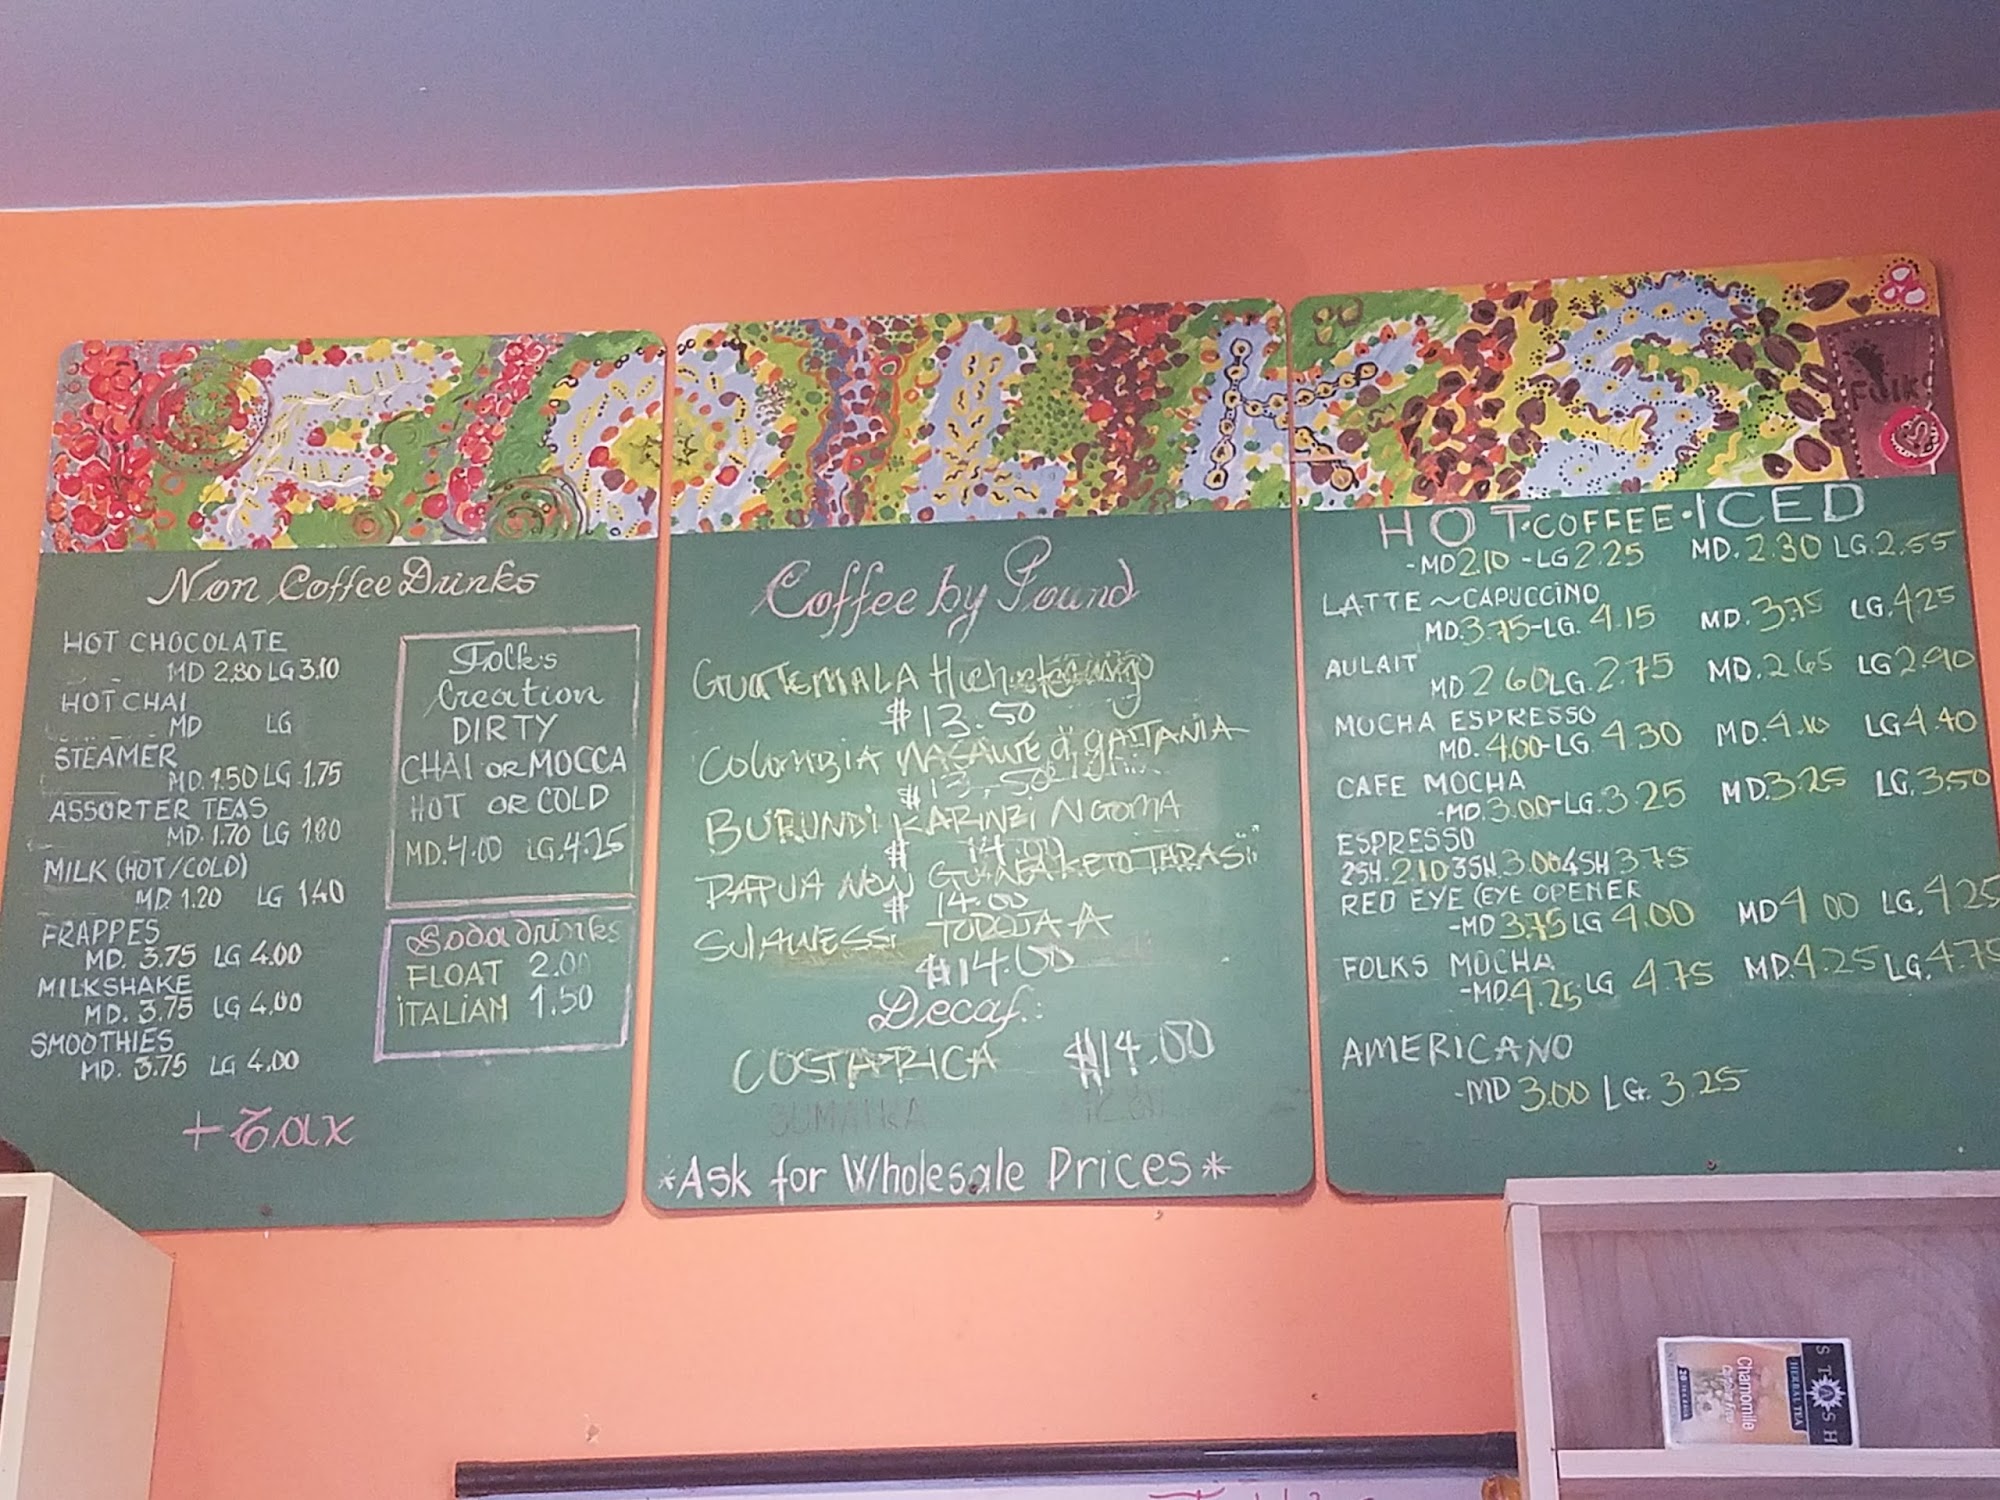 FOLKS
Folk
Non Coffee Drinks
HOT CHOCOLATE
MD 2.80 LG 3.10
HOT CHAI
MD LG
STEAMER
MD. 1.50 LG 1.75
ASSORTER TEAS
MD. 1.70 LG 1.80
MILK (HOT/COLD)
MD. 1.20 LG 1.40
FRAPPES
MD. 3.75 LG 4.00
MILKSHAKE
MD. 3.75 LG 4.00
SMOOTHIES
MD. 3.75 LG 4.00
+ Tax
Folk's
Creation
DIRTY
CHAI OR MOCCA
HOT OR COLD
MD. 4.00 LG. 4.25
Soda drinks
FLOAT 2.00
ITALIAN 1.50
Coffee by Pound
GUATEMALA
$13.50
COLOMBIA
$13.50
BURUNDI KARINZI NGOMA
$ 14.00
PAPUA NON GUINEA KETO TARASII
$ 14.00
SULAWESSI TOROJA A
$14.00
Decaf.:
COSTA RICA $14.00
SUMATRA
*Ask for Wholesale Prices*
HOT • COFFEE • ICED
-MD 2.10 -LG 2.25 MD. 2.30 LG. 2.55
LATTE ~ CAPUCCINO
MD. 3.75-LG. 4.15 MD. 3.75 LG. 4.25
AULAIT
MD 2.60 LG. 2.75 MD. 2.65 LG 2.90
MUCHA ESPRESSO
MD. 4.00-LG 4.30 MD. 4.10 LG 4.40
CAFE MOCHA
-MD. 3.00-LG. 3.25 MD 3.25 LG. 3.50
ESPRESSO
2SH. 2.10 3SH. 3.00 4SH 3.75
RED EYE (EYE OPENER
-MD 3.75 LG 4.00 MD 4.00 LG. 4.25
FOLKS MOCHA
-MD. 4.25 LG 4.75 MD. 4.25 LG. 4.75
AMERICANO
-MD 3.00 LG. 3.25
STASH
HERBAL TEA
Chamomile
Caffeine Free